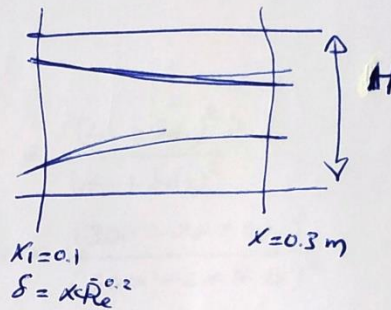 H
X₁=0.1
X=0.3 m
δ = x R̄e^0.2